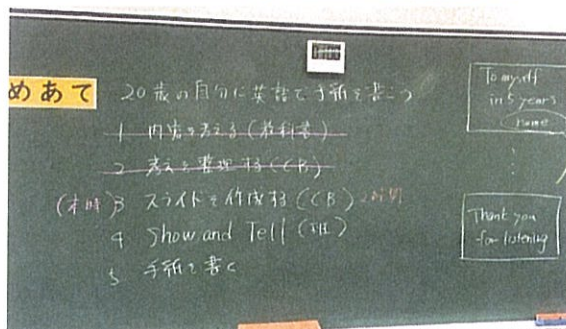 めあて 20歳の自分に英語で手紙を書こう
1 内容を考える(教科書)
2 考えを整理する(CB)
(本時)3 スライドを作成する(CB) 2時間
4 Show and Tell (班)
5 手紙を書く
To myself
in 5 years
name
Thank you
for listening